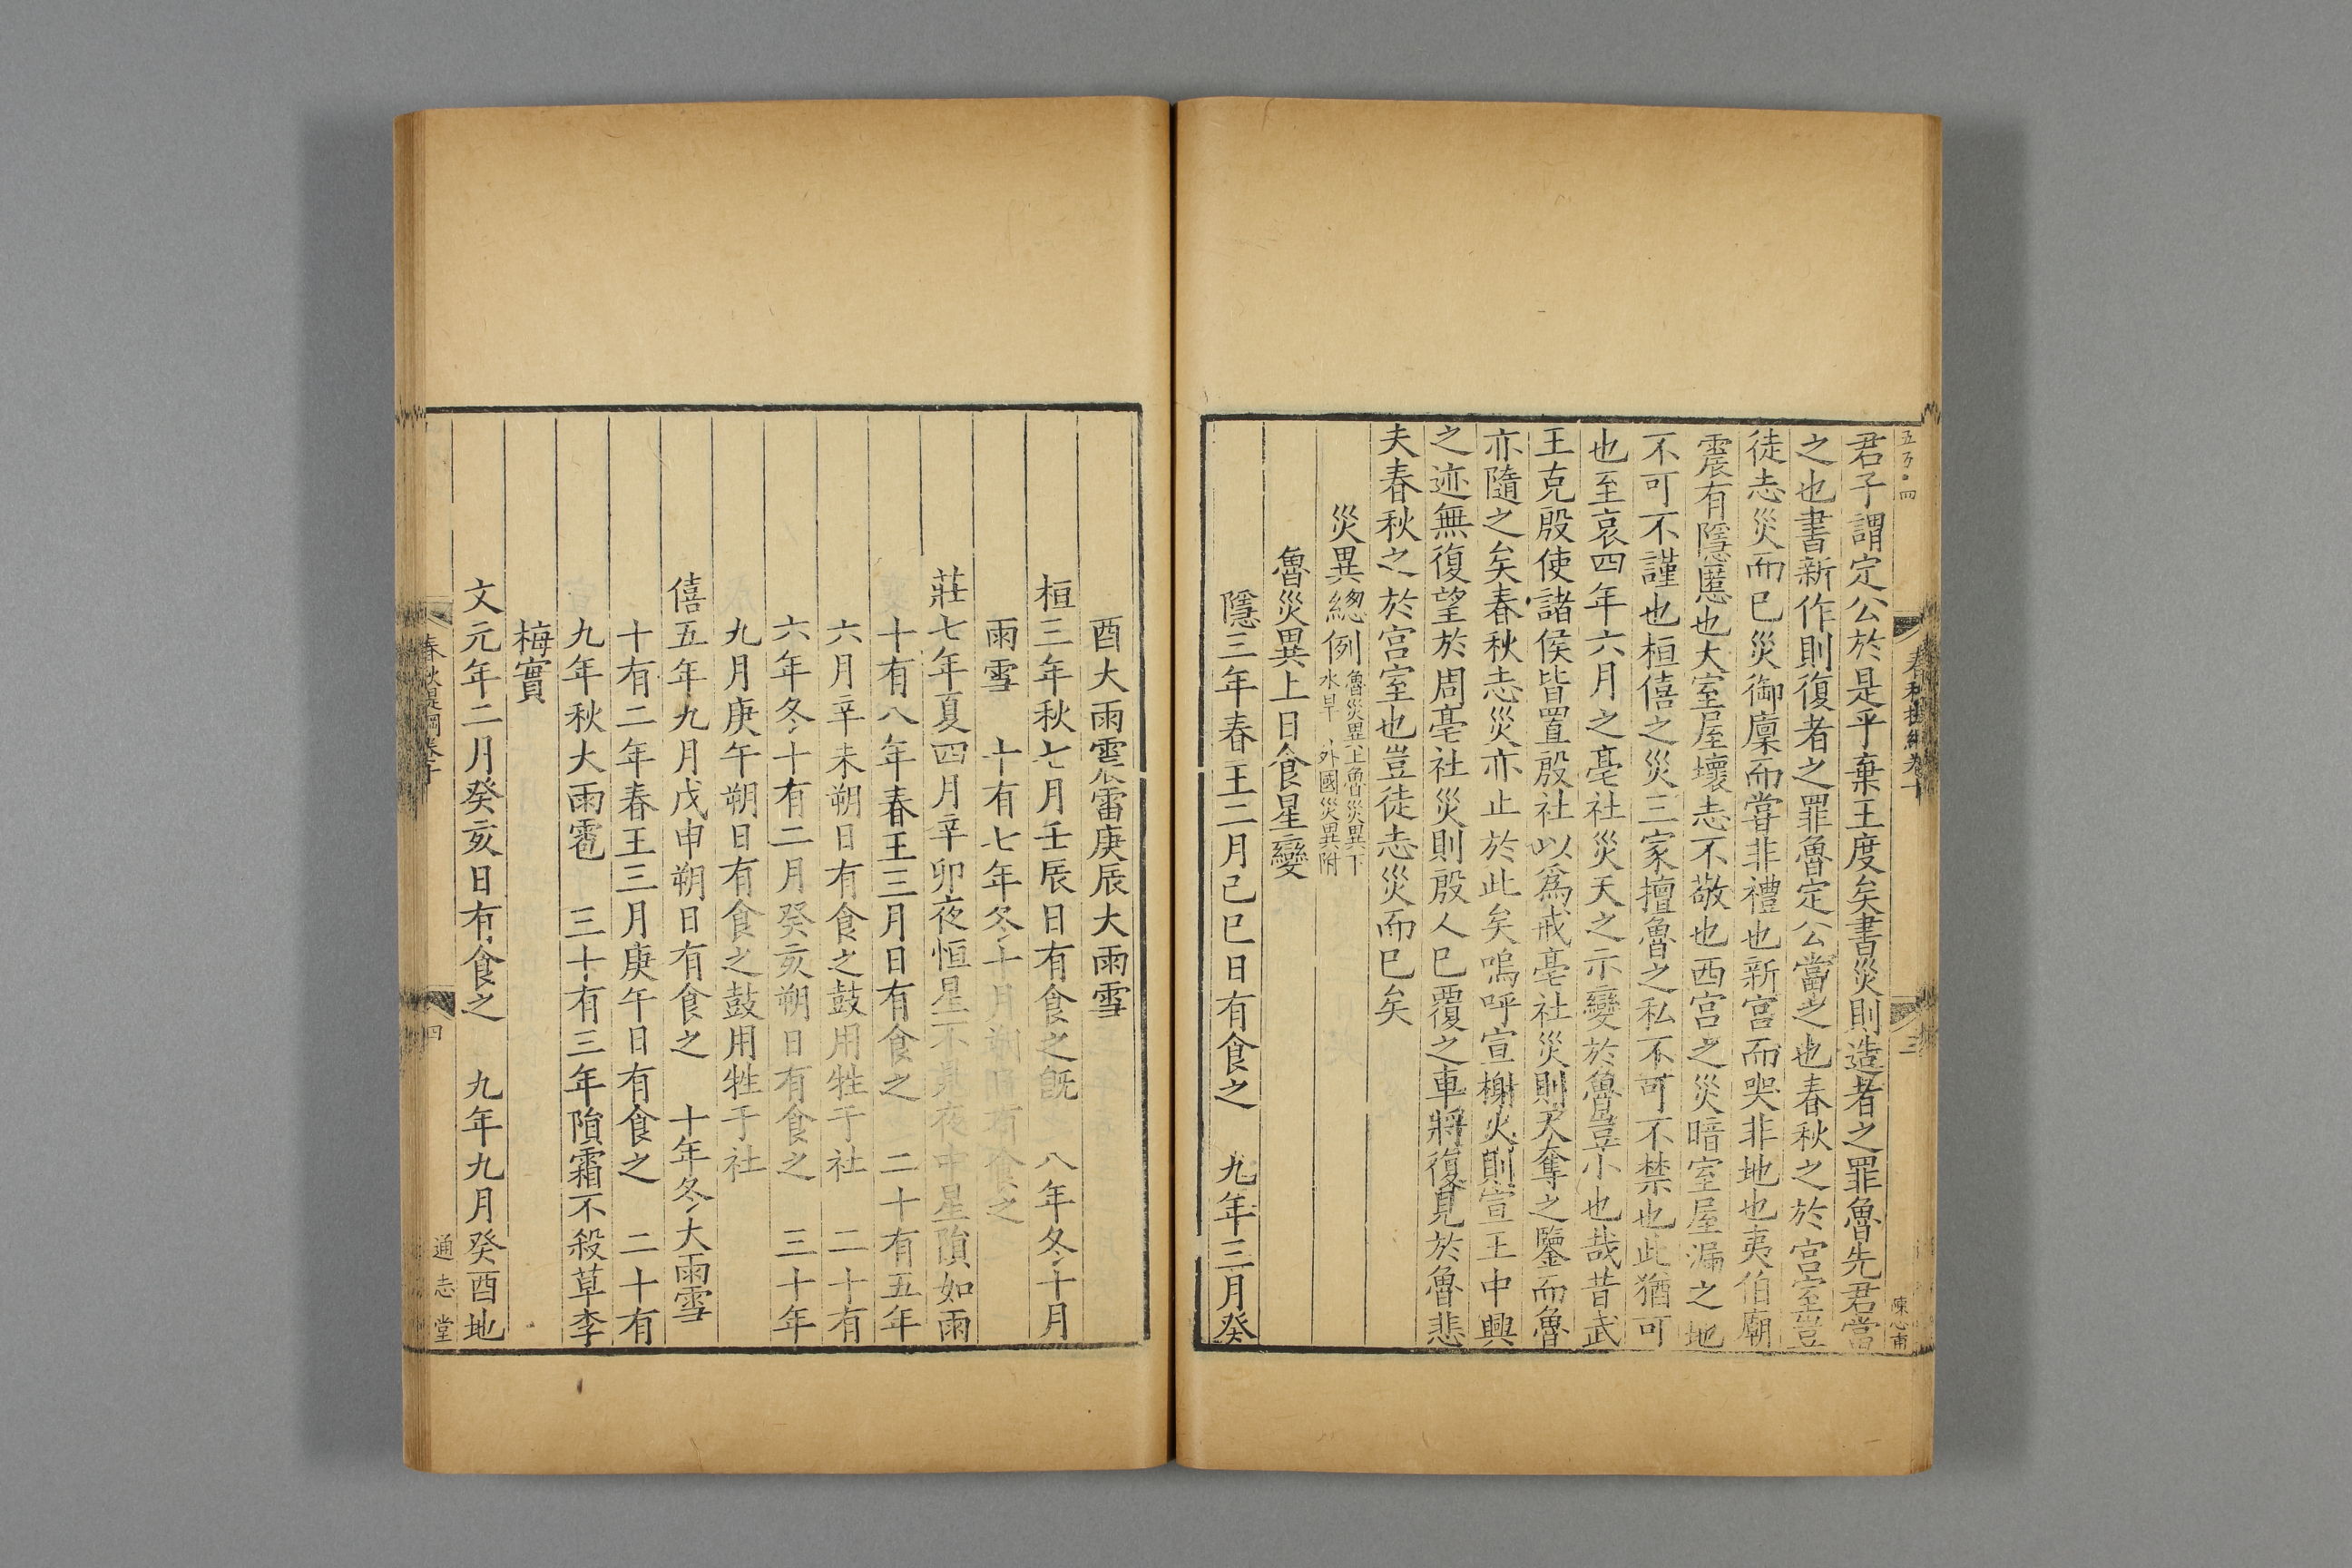 君子謂定公於是乎棄王度矣書災則造者之罪魯先君當
之也書新作則復者之罪魯定公當之也春秋之於宮室豈
徒志災而已災御廩而嘗非禮也新宮而哭非地也夷伯廟
震有隱慝也大室屋壞志不敬也西宮之災暗室屋漏之地
不可不謹也桓僖之災三家擅魯之私不可不禁也此猶可
也至哀四年六月之亳社災天之示變於魯豈小也哉昔武
王克殷使諸侯皆置殷社以爲戒亳社災則天奪之鑒而魯
亦隨之矣春秋志災亦止於此矣嗚呼宣榭火則宣王中興
之迹無復望於周亳社災則殷人已覆之車將復見於魯悲
夫春秋之於宮室也豈徒志災而已矣
災異總例 魯災異上魯災異下
水旱 外國災異附
魯災異上日食星變
隱三年春王二月己巳日有食之 九年三月癸
春秋提綱卷十
三
陳心甫
酉大雨震雷庚辰大雨雪
桓三年秋七月壬辰日有食之旣 八年冬十月
雨雪 十有七年冬十月朔日有食之
莊七年夏四月辛卯夜恒星不見夜中星隕如雨
十有八年春王三月日有食之 二十有五年
六月辛未朔日有食之鼓用牲于社 二十有
六年冬十有二月癸亥朔日有食之 三十年
九月庚午朔日有食之鼓用牲于社
僖五年九月戊申朔日有食之 十年冬大雨雪
十有二年春王三月庚午日有食之 二十有
九年秋大雨雹 三十有三年隕霜不殺草李
梅實
文元年二月癸亥日有食之 九年九月癸酉地
春秋提綱卷十
四
通志堂